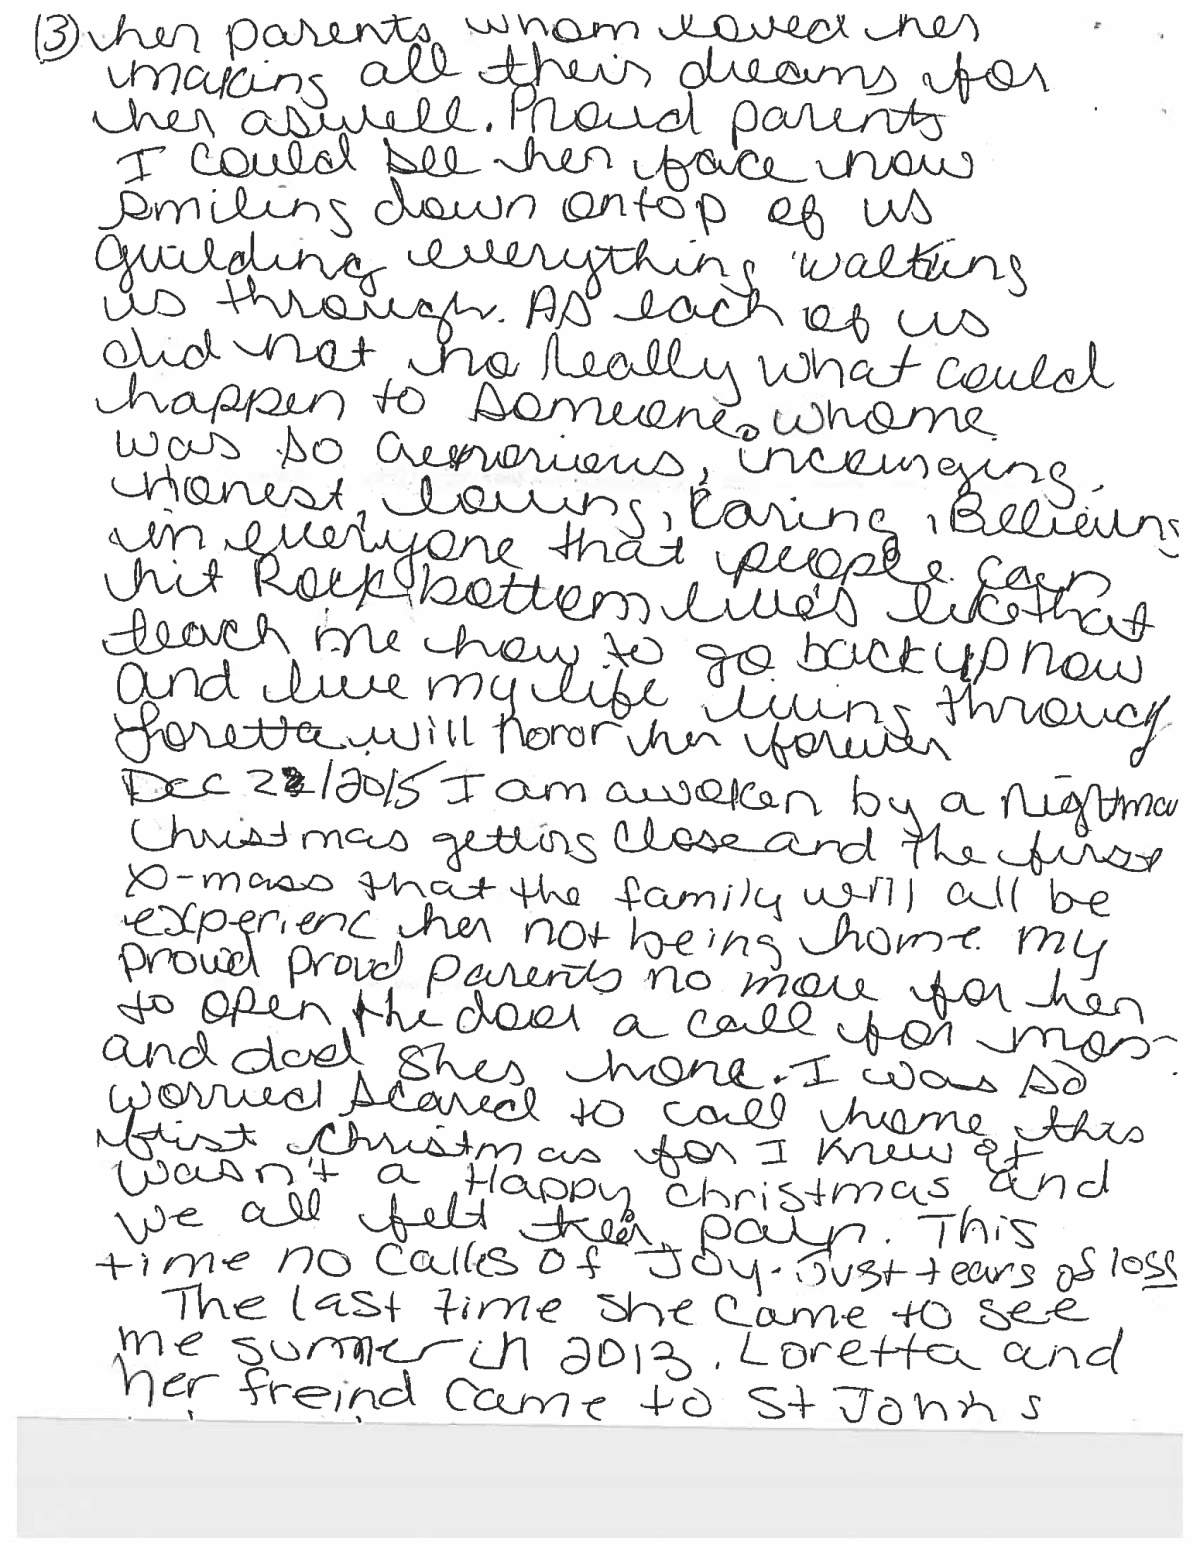 ③ her parents whom loved her
making all their dreams for
her aswell. Proud parents
I could see her face now
smiling down ontop of us
guilding everything walking
us through. As each of us
did not no really what could
happen to someone, whome
was so , incouraging,
Honest, loving, Caring, Believing
in everyone that people can
hit Rock bottom lives like that
teach me how to go back up now
and live my life living through
Loretta will honor her forever
Dec 22/2015 I am awaken by a nightmar
Christmas getting close and the first
X-mass that the family will all be
experienc her not being home my
proud proud parents no more for her
to open the door a call for mom
and dad shes home. I was so
worried scared to call home this
first Christmas for I knew it
wasn't a Happy Christmas and
we all felt their pain. This
time no calles of Joy. Just tears of loss
The last time she came to see
me summer in 2013. Loretta and
her freind came to St Johns